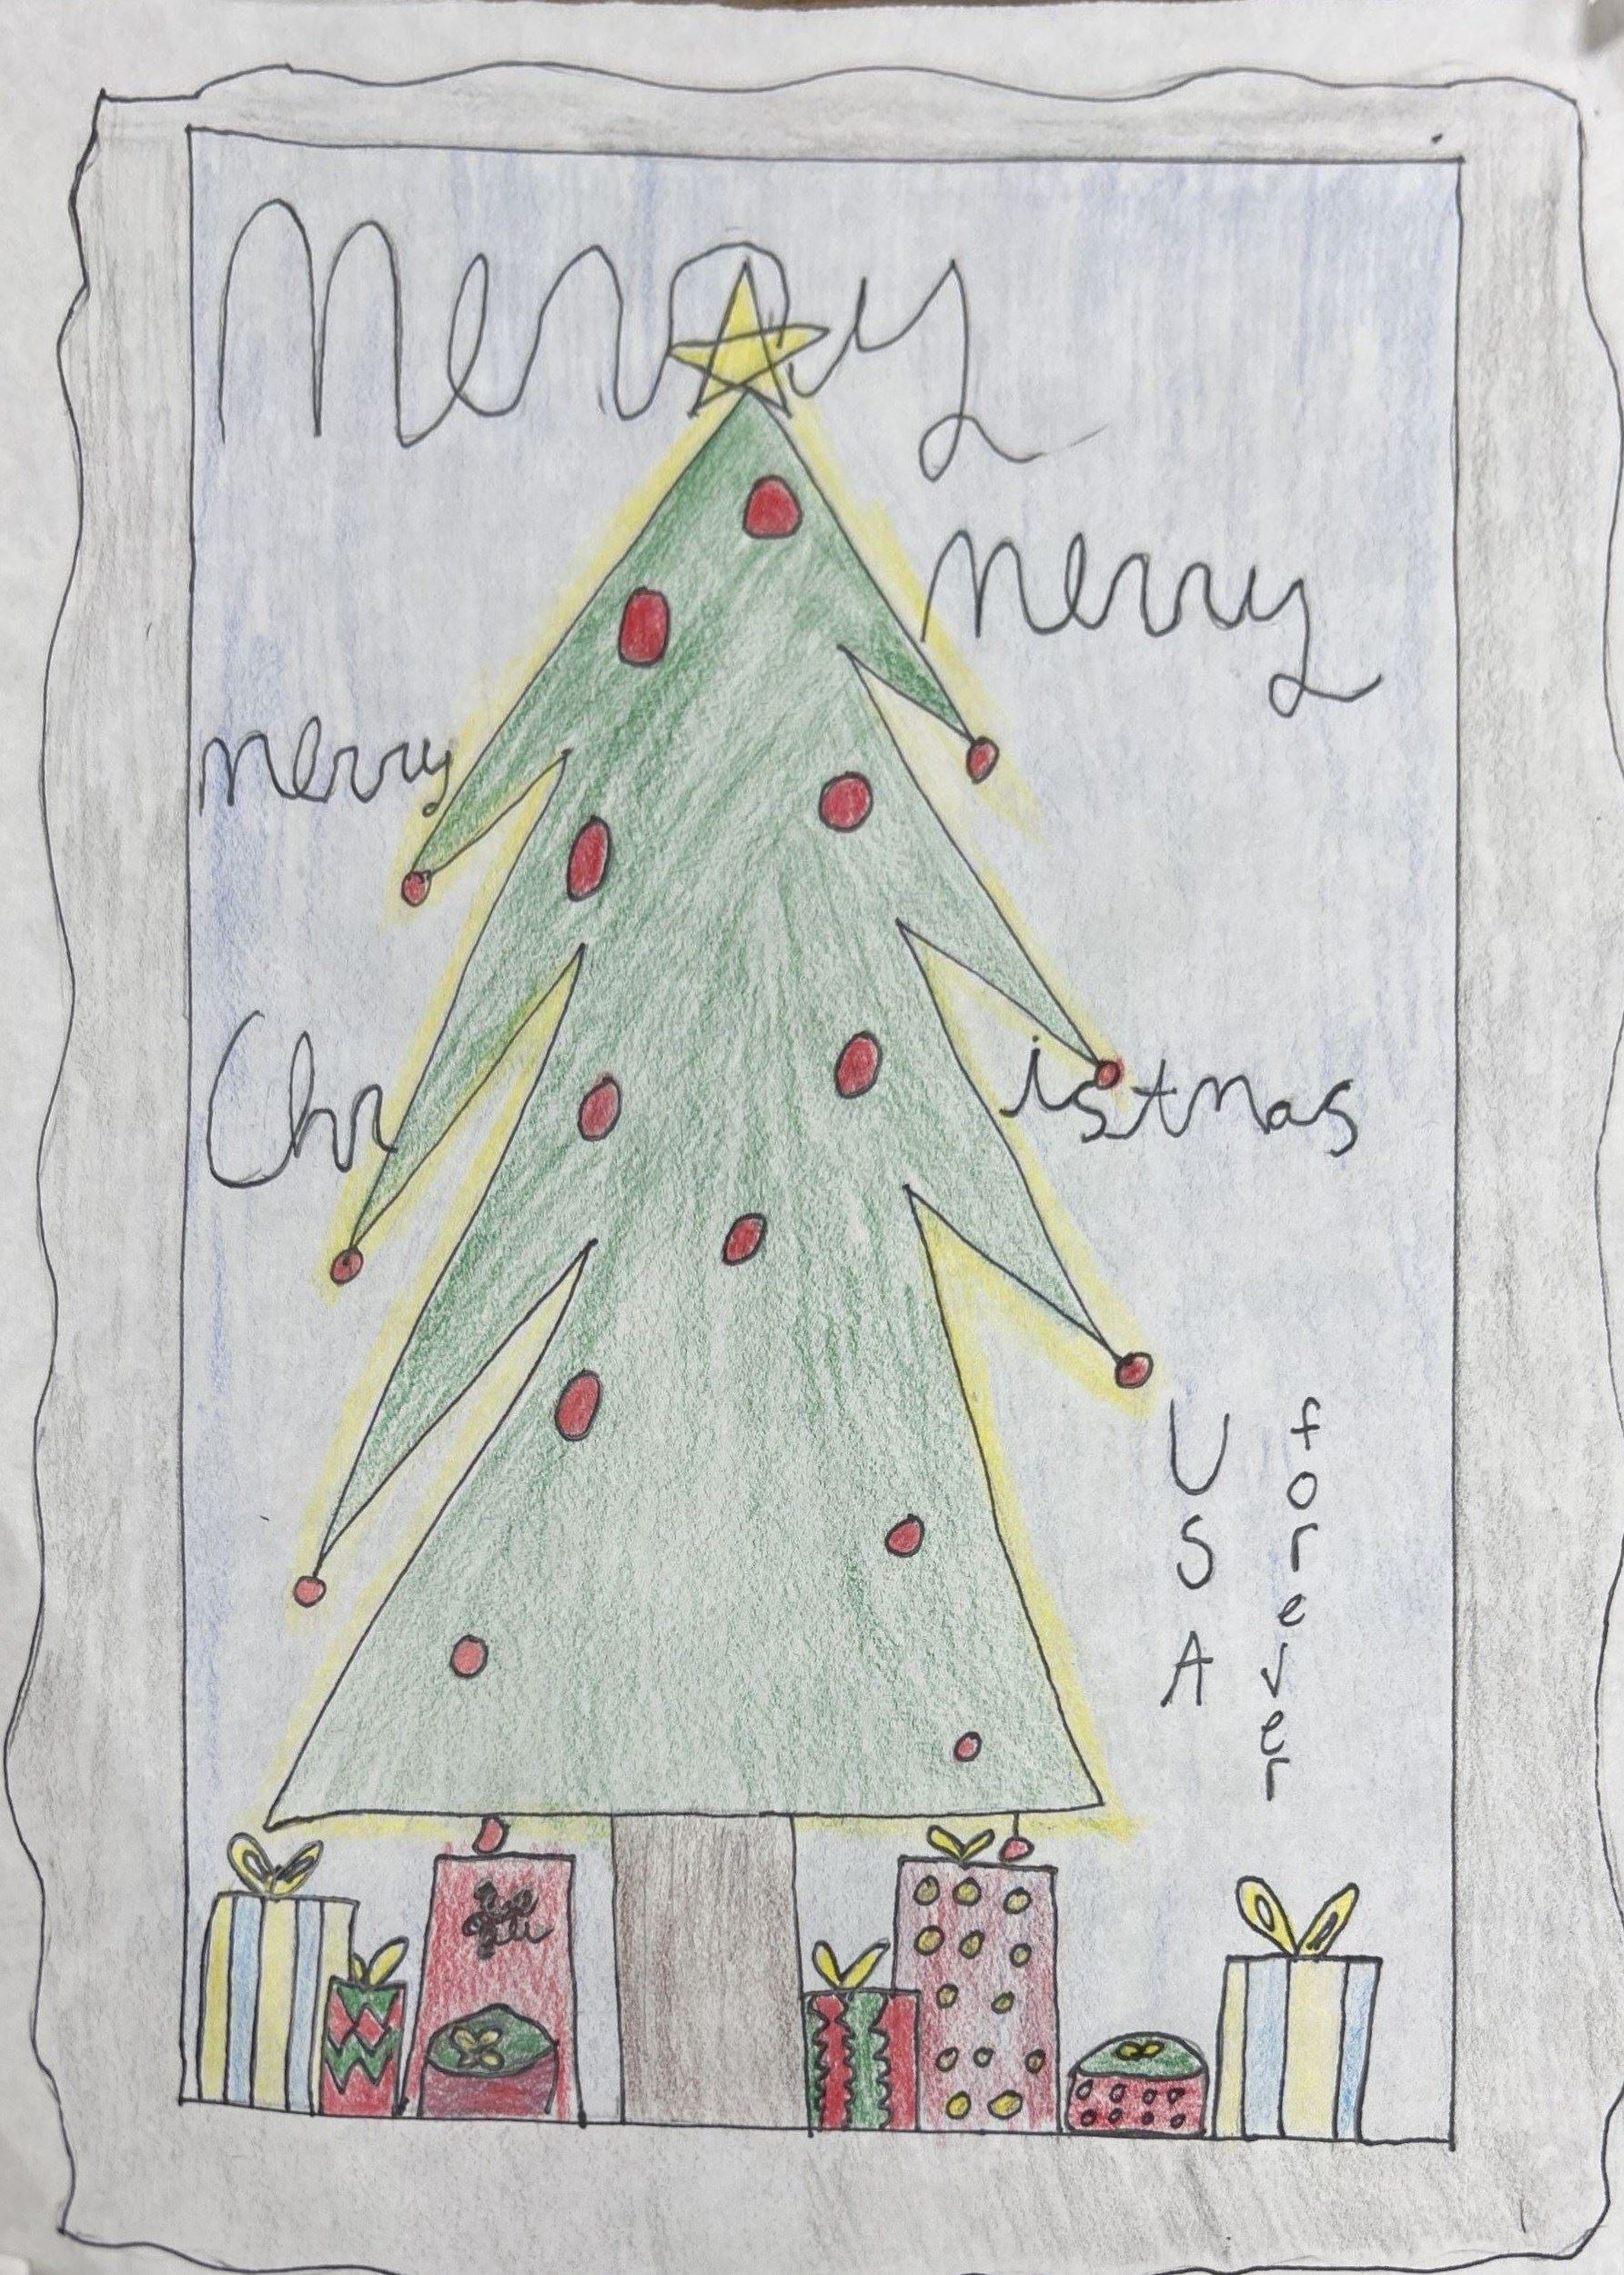 Merry
Merry
merry
Christmas
USA
forever